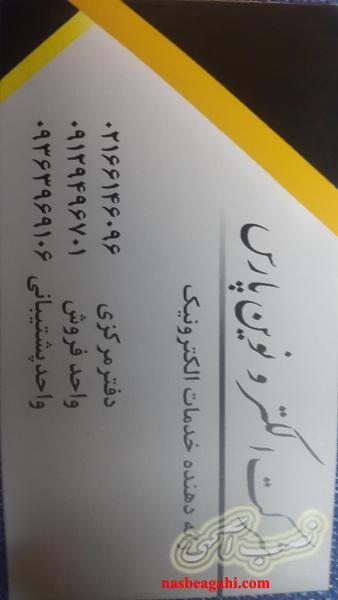 شرکت الکترو نوین پارس
دهنده خدمات الکترونیک
دفتر مرکزی ۰۲۱۶۶۱۴۶۰۹۶
واحد فروش ۰۹۱۲۹۴۹۶۷۰۱
واحد پشتیبانی ۰۹۳۶۳۹۶۹۱۰۶
نصب آگهی
nasbeagahi.com